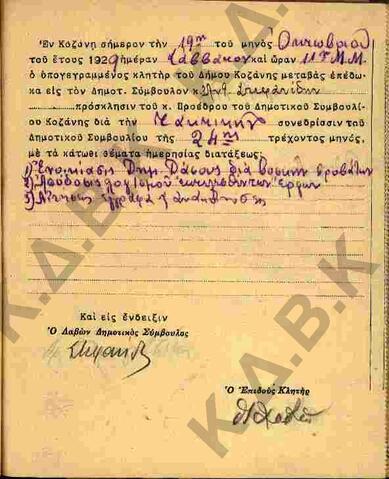 Ἐν Κοζάνῃ σήμερον τὴν 19ην τοῦ μηνὸς Ὀκτωβρίου
τοῦ ἔτους 1929 ἡμέραν Σάββατον καὶ ὥραν 11 π.Μ.Μ.
ὁ ὑπογεγραμμένος κλητὴρ τοῦ Δήμου Κοζάνης μεταβὰς ἐπέδω-
κα εἰς τὸν Δημοτ. Σύμβουλον κ.
πρόσκλησιν τοῦ κ. Προέδρου τοῦ Δημοτικοῦ Συμβουλί-
ου Κοζάνης διὰ τὴν Τακτικὴν συνεδρίασιν τοῦ
Δημοτικοῦ Συμβουλίου τῆς 24ης τρέχοντος μηνός,
μὲ τὰ κάτωθι θέματα ἡμερησίας διατάξεως:
1) Ἐνοικίασις Δημ. Δάσους διὰ βοσκὴν προβάτων
2) ἔργων
3) ἔγγραφα ἢ
Καὶ εἰς ἔνδειξιν
Ὁ Λαβὼν Δημοτικὸς Σύμβουλος
Ὁ Ἐπιδοὺς Κλητὴρ
Κ.Δ.Β.Κ
Κ.Δ.Β.Κ